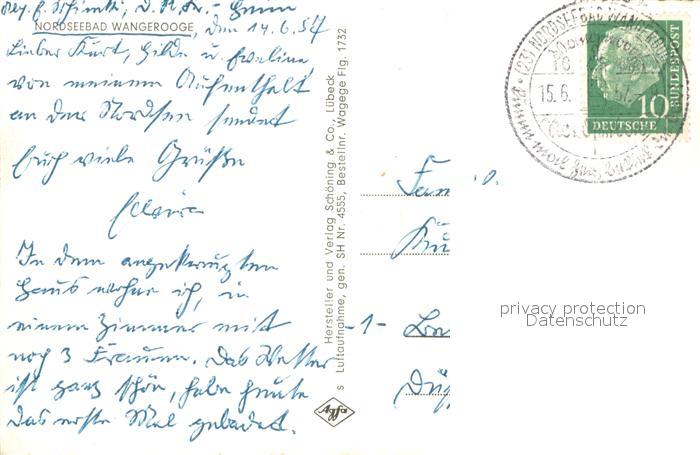 NORDSEEBAD WANGEROOGE, den 14.6.57
Lieber Kurt, Hilde u. Eveline
von meinem Aufenthalt
an der Nordsee sendet
Euch viele Grüße
In dem angekreuzten
Haus wohne ich, in
einem Zimmer mit
noch 3 Frauen. Das Wetter
ist ganz schön, habe heute
das erste Mal gebadet.
Hersteller und Verlag Schöning & Co., Lübeck
s Luftaufnahme, gen. SH Nr. 4555, Bestellnr. Wagege Flg. 1732
Agfa
(23) NORDSEEBAD WANGEROOGE
15.6.
10
DEUTSCHE
BUNDESPOST
Fam
-1-
privacy protection
Datenschutz